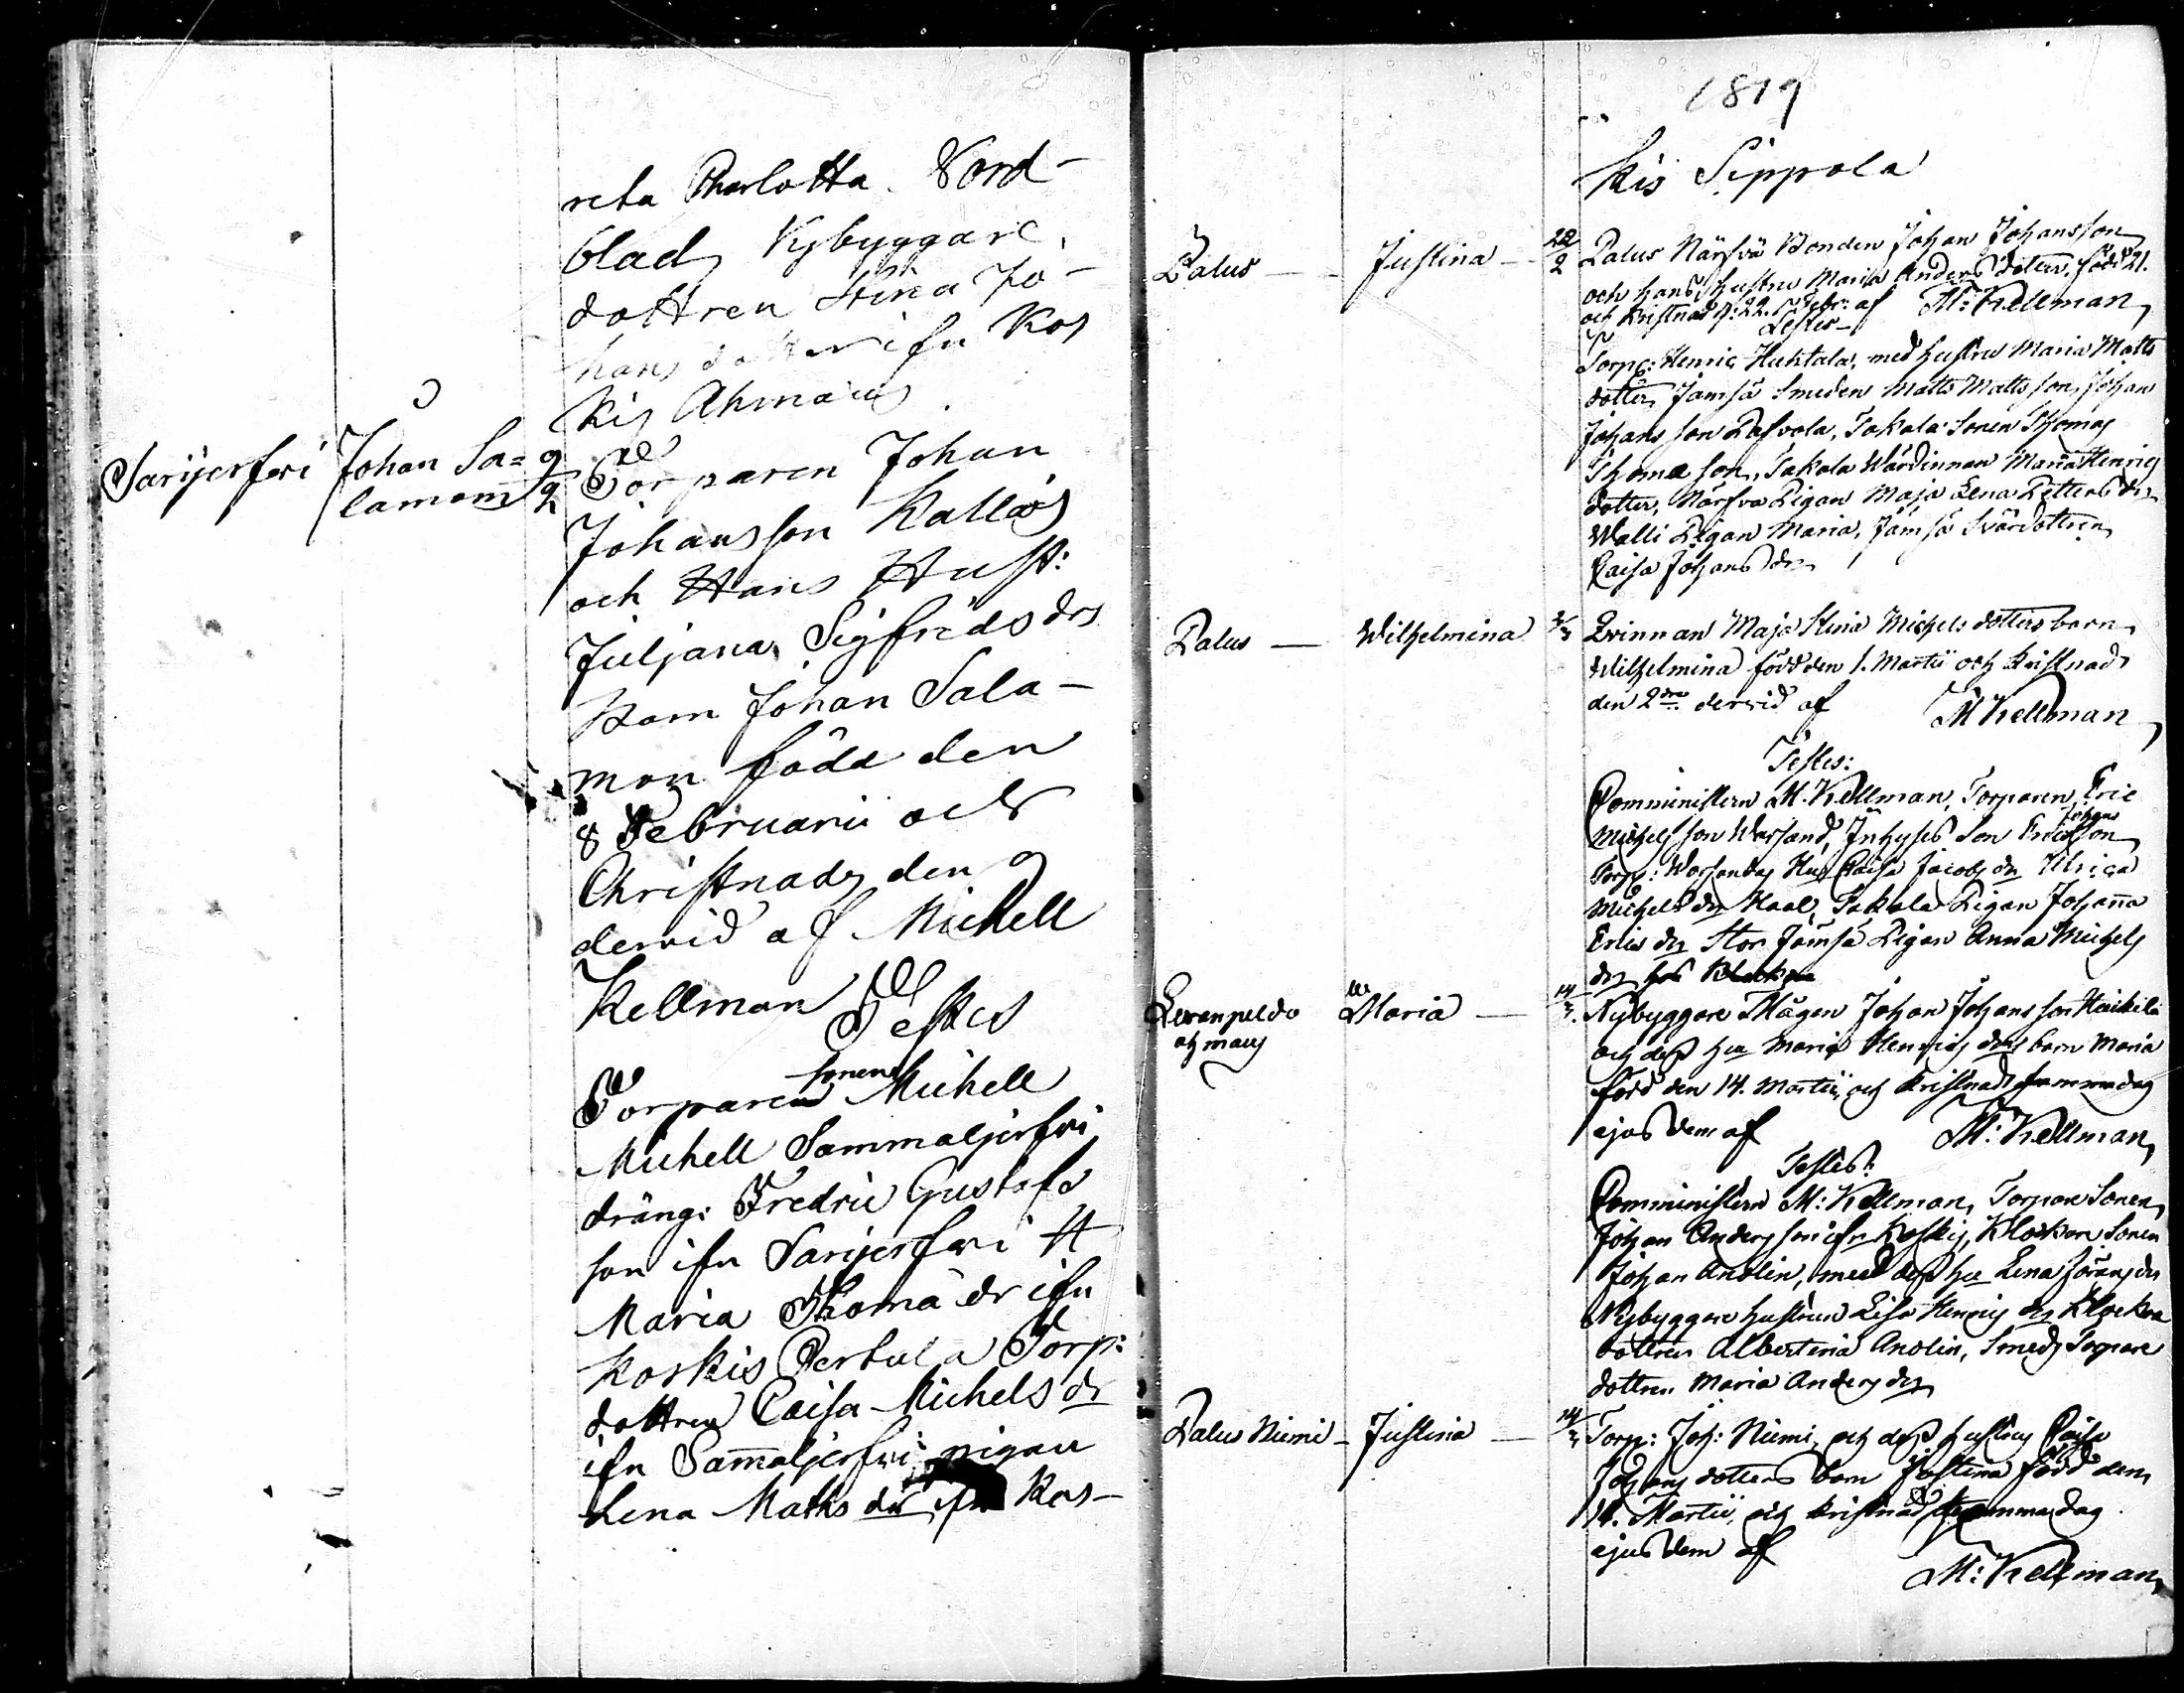 reta Charlotta Nord-
blad, Nybyggare
dottren Stina Jo-
hans dotter ifrn Kos
kis Ahmaus
Sarijerfvi Johan Sa= 9/2 Torparen Johan
lamom Johansson Kallas
och Hans Hust:
Juljana Sigfrids drs
barn Johan Sala-
mon född den
8 Februarii och
Christnads den 9
dervid af Michell
Kellman Testes
Torparen sonen Michell
Michell Sammaljerfvi
dräng: Fredric Gustafs
son ifrn Sarijerfvi H
Maria Thoma dr ifrn
Koskis Pertula Torp:
dottren Caisa Michels dr
ifrn Samaljerfvi pigan
Lena Maths dr ifrn Kos-
1819
kis Sippola
Palus - Justina - 22/2 Palus Närfvä Bonden Johan Johansson
och hans hustru Maria Anders dotter, född 21.
och Kristnad d: 22. Febr: af M: Kellman,
Testes
Torp: Henric Huhtala, med hustru Maria Matts
dotter, Jamsä Smeden Matts Mattsson, Johan
Johansson Rafvola, Takala Sonen Thomas
Thomasson, Takala Wärdinnan Maria Henrics
dotter, Närfvä Pigan Maja Lena Petters dr
Walli Pigan Maria, Jämsä Svärdottren
Caisa Johans dr
Palus - Wilhelmina 2/3 Qvinnan Maja Stina Michels dotters barn
Wilhelmina född den 1. Martii och kristnad
den 2dra dervid af M Kellman
Testes:
Comministern M. Kellman, Torparen Eric
Michelsson Warsand, Inhyses Son Eric Johans son
Torp: Worsandas Hus Caisa Jacobs dr Ulrica
Michels dr Maal, Takala Pigan Johanna
Erics dr Stor Jämsä Pigan Anna Michels
dr hos
Maria - 14/3. Nybyggare Mågen Johan Johansson Heikilä
ahmaus och dess hu Maria Henrics drs barn Maria
född den 14. Martii, och kristnads samma dag
ejusdem af M: Kellman,
Testes:
Comministern M: Kellman, Torpare Sonen,
Johan Andersson ifn Koskis, Klockare Sonen
Johan Anolin, med dess hu Lena Jörans dr
Nybyggare hustrun Lisa Henrics dr Klockare
dottren Albertina Anolin, Smeds Torpare
dottren Maria Anders dr
Palus Niemi - Justina - 14/3 Torp: Joh: Niemi, och dess hustrus Caisa
Johans dotters barn Justina född den
14. Martii, och kristnad samma dag
ejusdem af
M: Kellman,